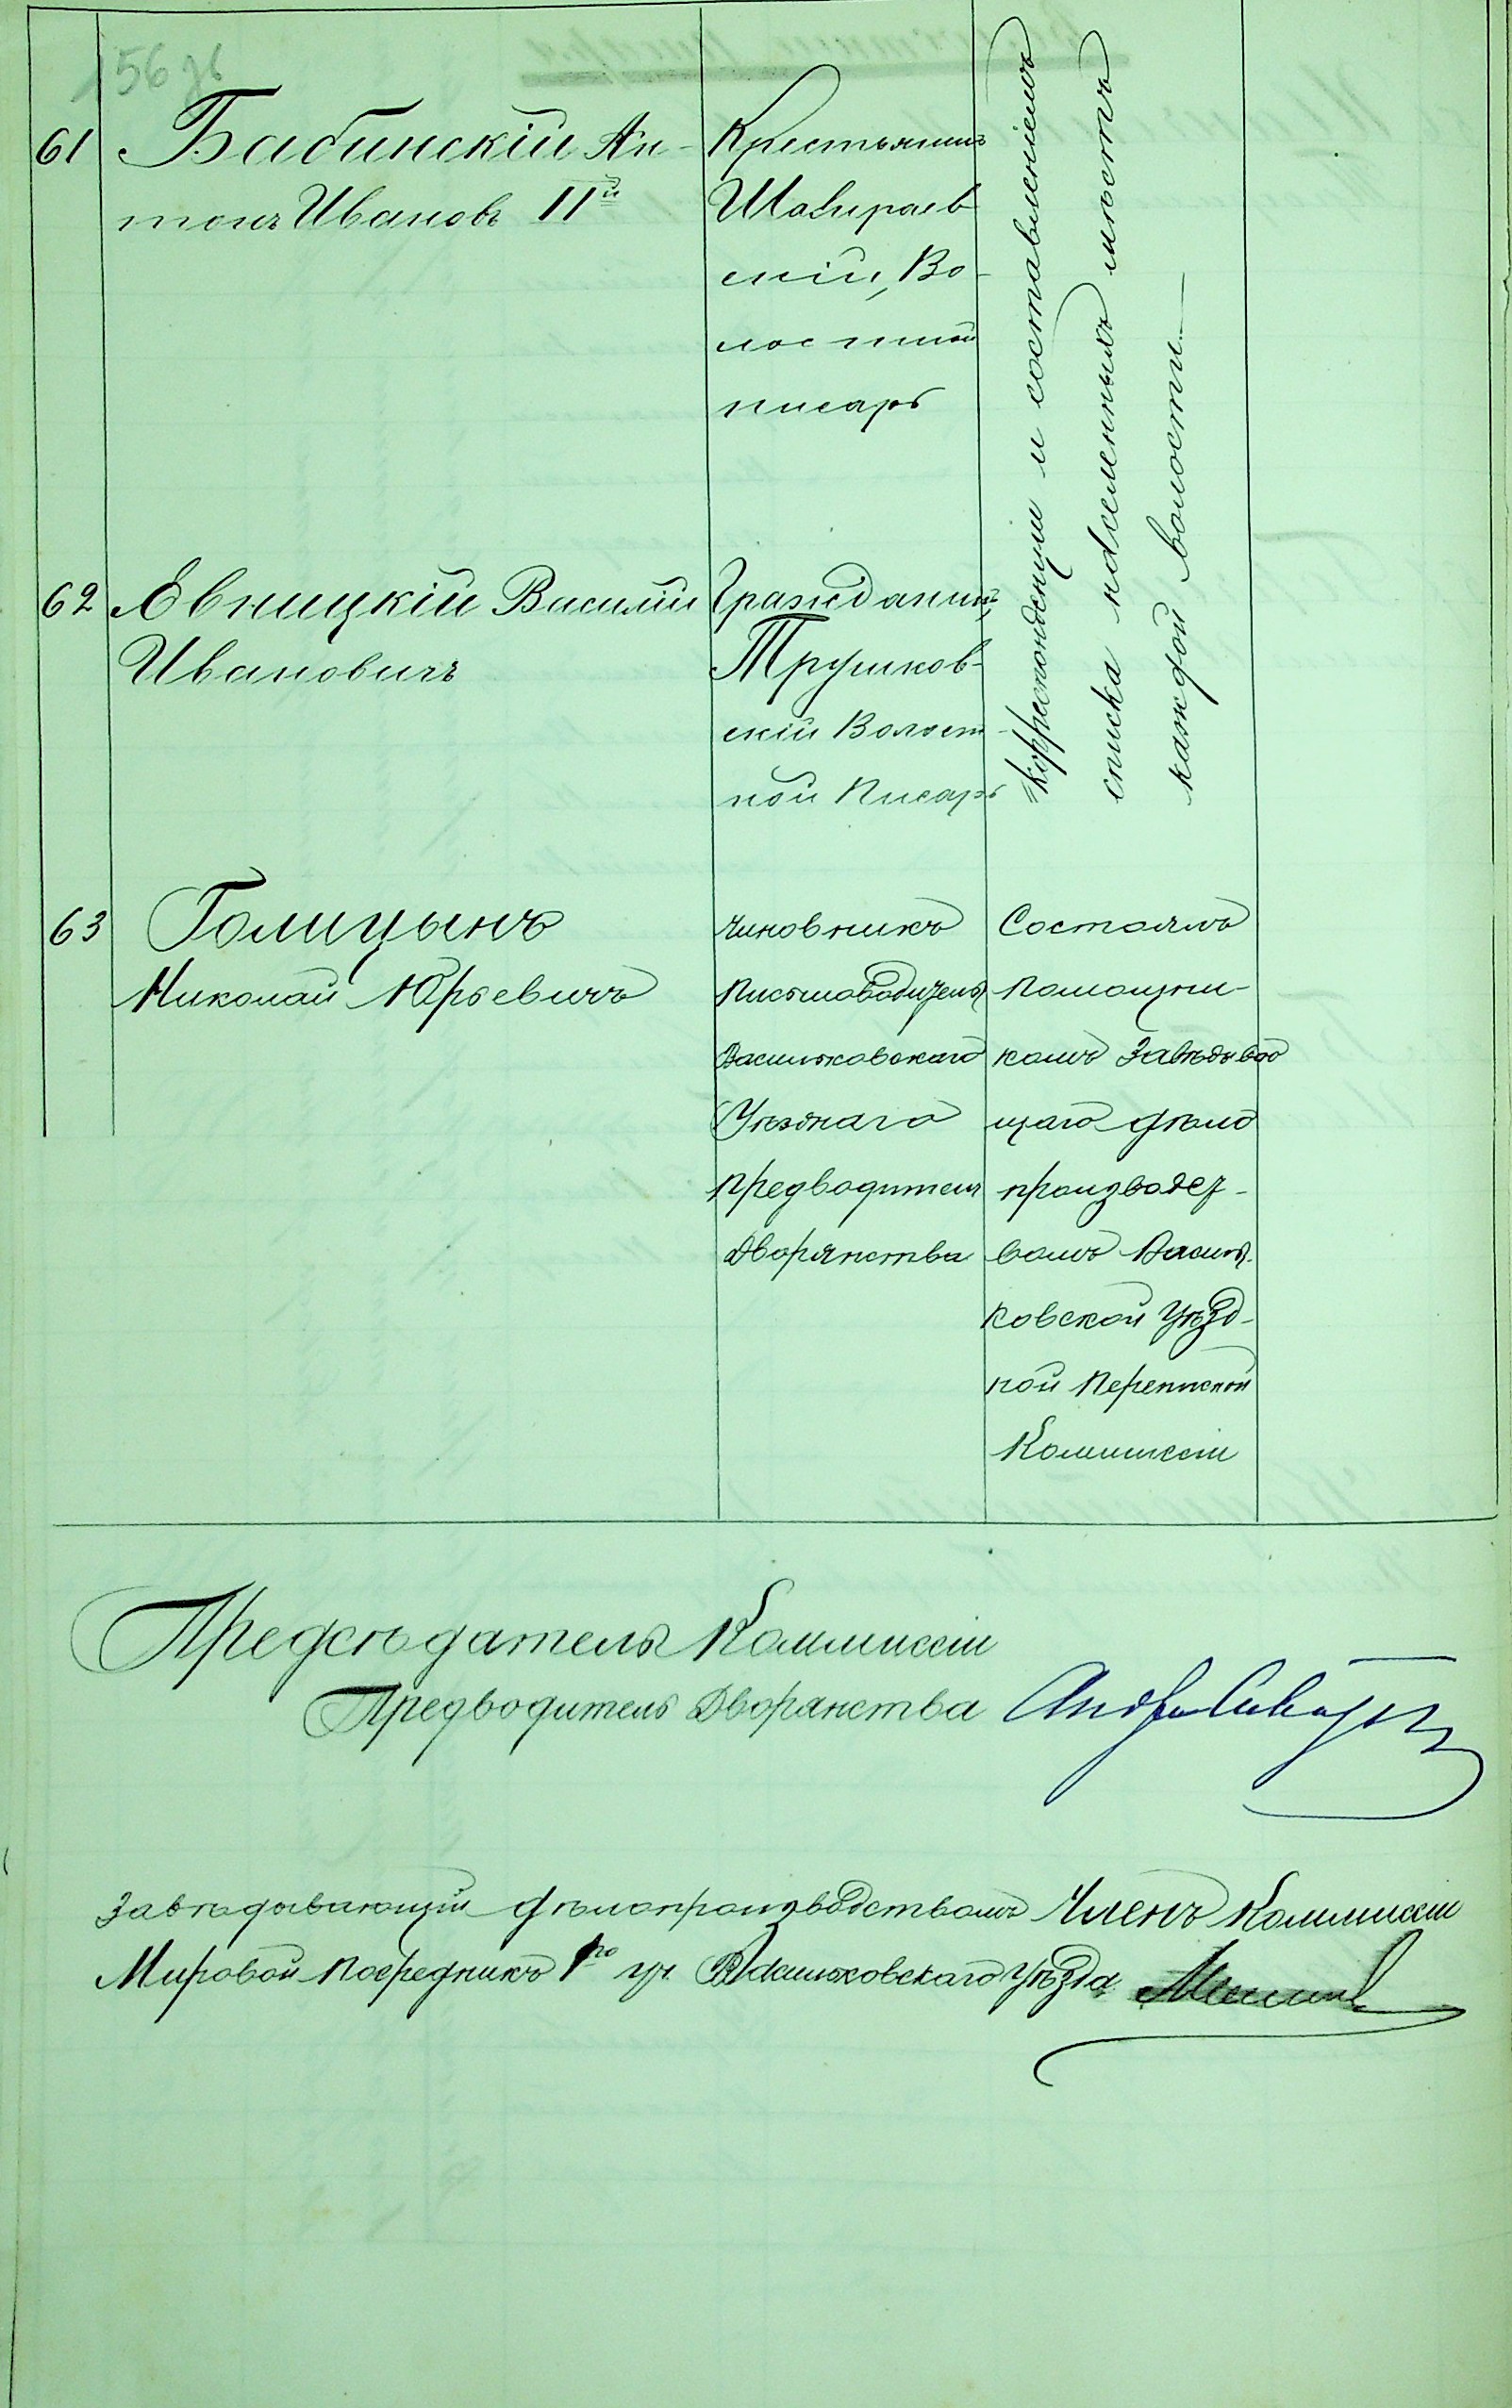 156 зв
61 Бабинскій Ан-
тонъ Ивановъ IIй
Крестьянинъ
Шавираев
скій, Во-
лостной
писарь
Корреспонденціи и составленіемъ
списка населенныхъ мѣстъ
каждой волости
62 Евницкій Василій
Ивановичъ
Гражданинъ,
Трушков-
скій Волост-
ной Писарь
63 Голицынъ
Николай Юрьевичъ
Чиновникъ
Письмоводитель
Васильковскаго
Уѣзднаго
Предводителя
Дворянства
Состоялъ
помощни-
комъ Завѣдываю
щаго дѣло
производст-
вомъ Василь-
ковской Уѣзд-
ной Переписной
Коммиссіи
Предсѣдатель Коммиссіи
Предводитель Дворянства
Завѣдывающій дѣлопроизводствомъ Членъ Коммиссіи
Мировой Посредникъ 1го уч. Васильковскаго Уѣзда